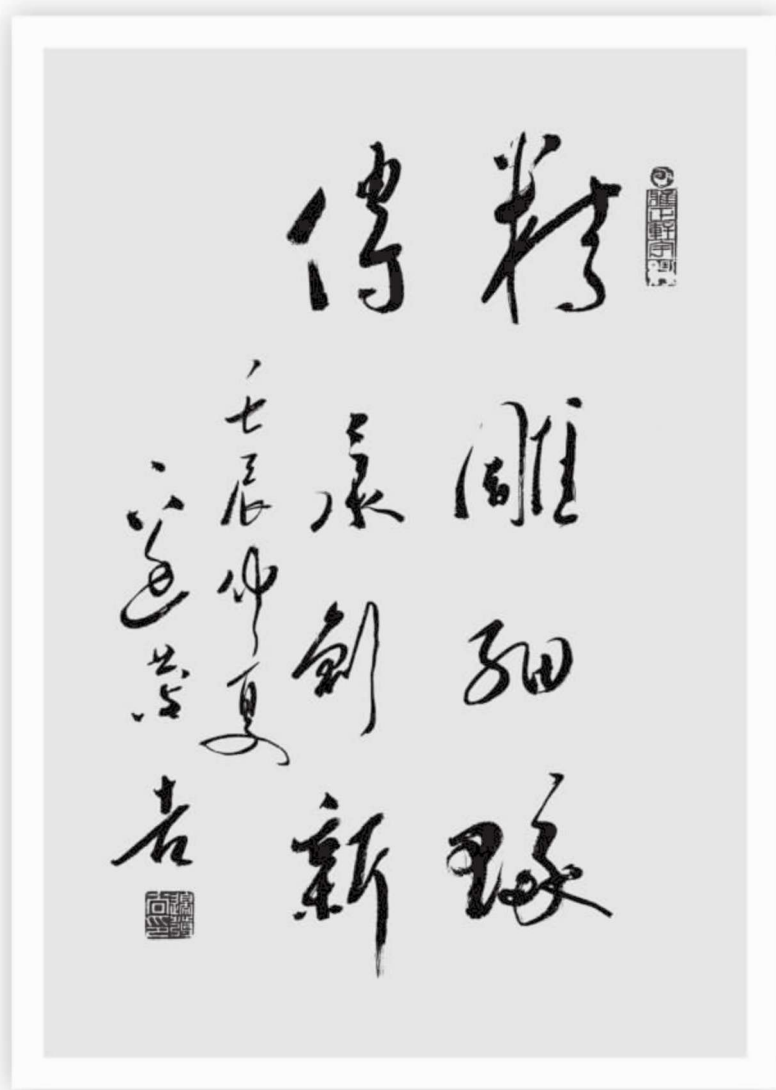 精雕細琢
傳承創新
壬辰仲夏
邊發吉